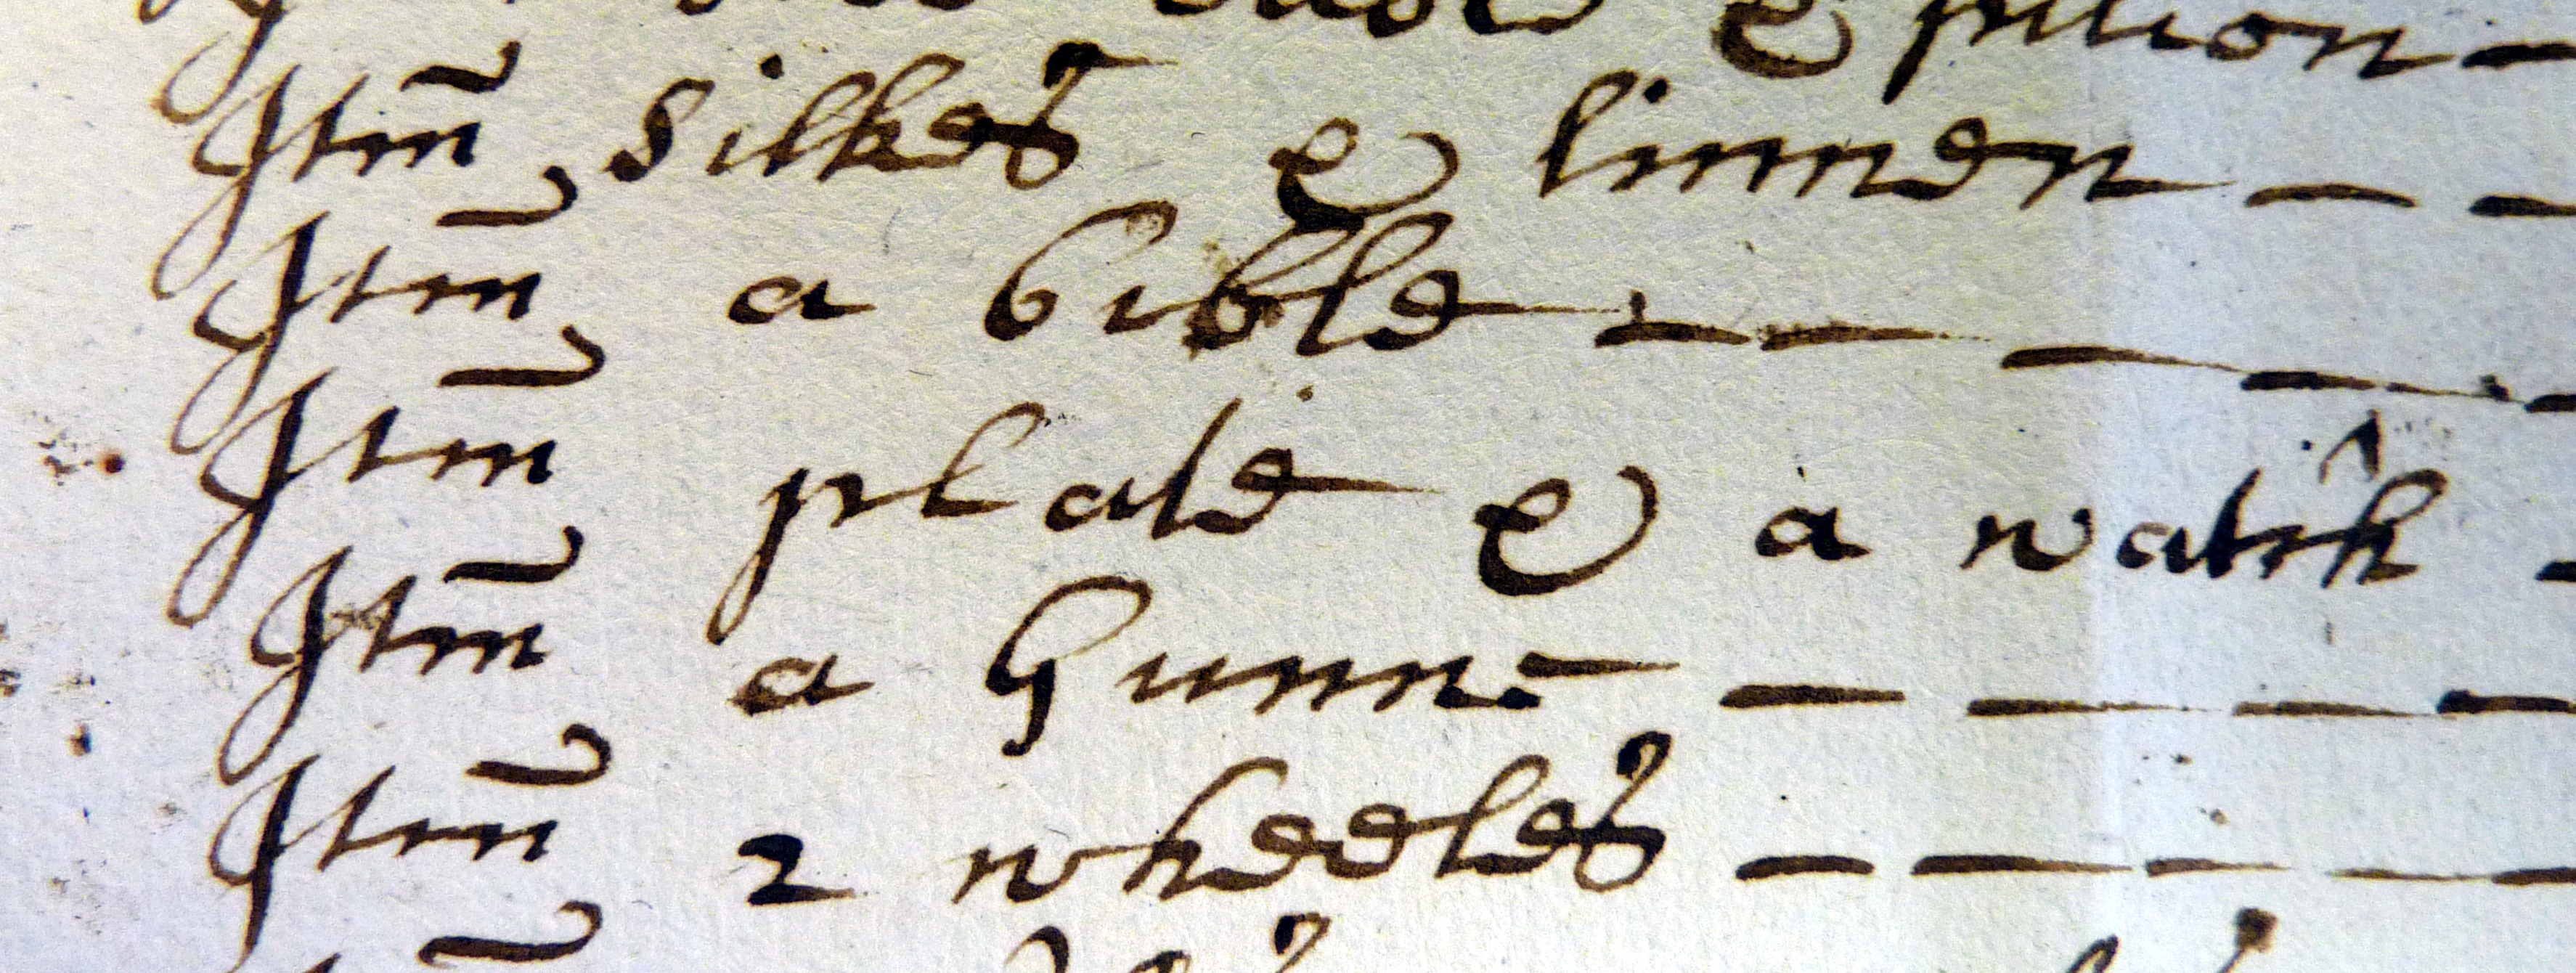 & pillion –
Itm̄ Silkes & linnen – –
Itm̄ a bible – – – – –
Itm̄ plate & a watch –
Itm̄ a Gunn – – – – –
Itm̄ 2 wheeles – – – – –